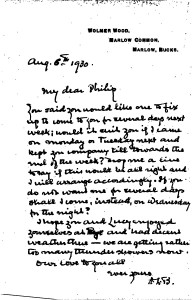 WOLMER WOOD,
MARLOW COMMON,
MARLOW, BUCKS.
Aug. 6th 1930.
My dear Philip
You said you would like one to fix
up to come to you for several days next
week; would it suit you if I came
on Monday or Tuesday next and
kept you company till towards the
end of the week? Drop me a line
to say if this would be all right and
I will arrange accordingly. If you
do not want me for several days
shall I come, instead, on Wednesday
for the night?
I hope you and Lucy enjoyed
yourselves at and had decent
weather there — we are getting rather
too many thunder showers now.
Our love to you all
Ever yours